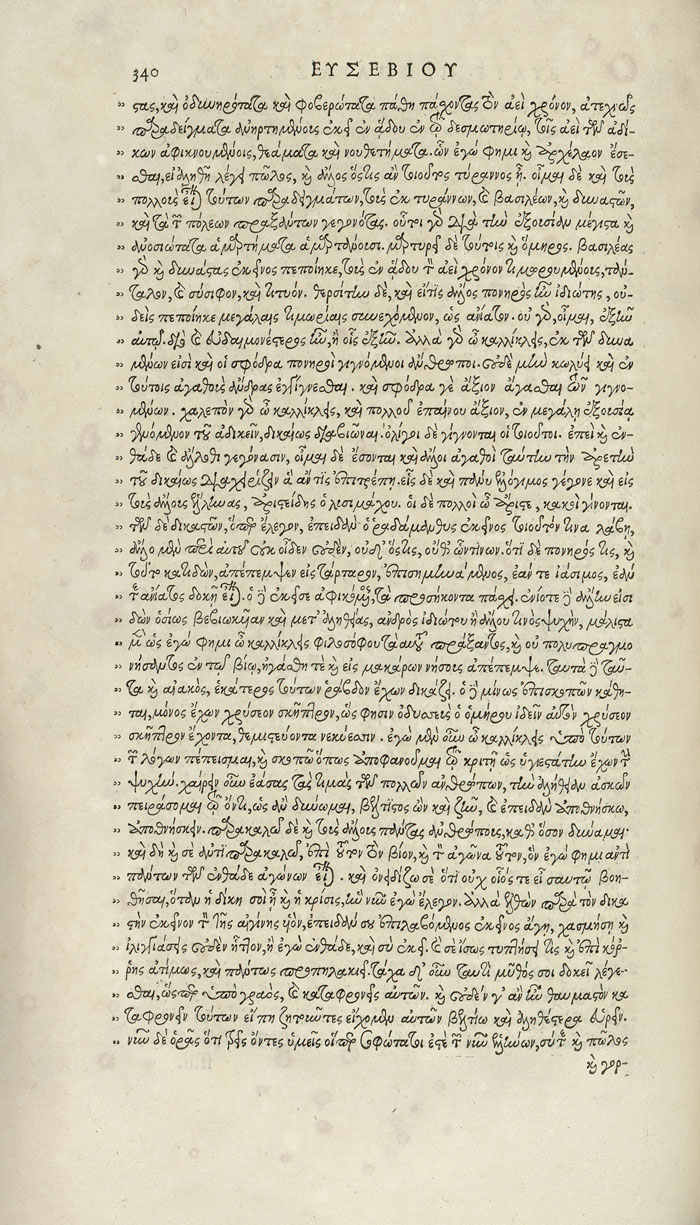 340 ΕΥΣΕΒΙΟΥ
" τας, καὶ ὀδυνηρότατα καὶ φοβερώτατα πάθη πάχοντας τὸν ἀεὶ χρόνον, ἀτεχνῶς
" παραδείγματα ἀνηρτημένους ἐκεῖ ἐν ᾅδου ἐν τῷ δεσμωτηρίῳ, τοῖς ἀεὶ τῶν ἀδί-
" κων ἀφικνουμένοις, θεάματα καὶ νουθετήματα. ὧν ἐγώ φημι καὶ ἀρχέλαον ἔσε-
" σθαι, εἰ ἀληθῆ λέγει πῶλος, καὶ ἄλλος ὅστις ἂν τοιοῦτος τύραννος ᾖ. οἶμαι δὲ καὶ τοὺς
" πολλοὺς εἶναι τούτων παραδειγμάτων, τοὺς ἐκ τυράννων, καὶ βασιλέων, καὶ δυναστῶν,
" καὶ τὰ τῶν πόλεων πραξάντων γεγονότας. οὗτοι γὰρ διὰ τὴν ἐξουσίαν μέγιστα καὶ
" ἀνοσιώτατα ἁμαρτήματα ἁμαρτάνουσι. μαρτυρεῖ δὲ τούτοις καὶ ὅμηρος. βασιλέας
" γὰρ καὶ δυνάστας ἐκεῖνος πεποίηκε, τοὺς ἐν ᾅδου τὸν ἀεὶ χρόνον τιμωρουμένους, τάν-
" ταλον, καὶ σύσιφον, καὶ τιτυόν. θερσίτην δὲ, καὶ εἴ τις ἄλλος πονηρὸς ἦν ἰδιώτης, οὐ-
" δεὶς πεποίηκε μεγάλαις τιμωρίαις συνεχόμενον, ὡς ἀνίατον. οὐ γὰρ, οἶμαι, ἐξῆν
" αὐτῷ. διὸ καὶ εὐδαιμονέστερος ἦν, ἢ οἷς ἐξῆν. ἀλλὰ γὰρ ὦ καλλίκλεις, ἐκ τῶν δυνα
" μένων εἰσὶ καὶ οἱ σφόδρα πονηροὶ γιγνόμενοι ἄνθρωποι. οὐδὲν μὴν κωλύει καὶ ἐν
" τούτοις ἀγαθοὺς ἄνδρας ἐγγίγνεσθαι. καὶ σφόδρα γε ἄξιον ἄγασθαι τῶν γιγνο-
" μένων. χαλεπὸν γὰρ ὦ καλλίκλεις, καὶ πολλοῦ ἐπαίνου ἄξιον, ἐν μεγάλῃ ἐξουσίᾳ
" γενόμενον τοῦ ἀδικεῖν, δικαίως διαβιῶναι. ὀλίγοι δὲ γίγνονται οἱ τοιοῦτοι. ἐπεὶ καὶ ἐν-
" θάδε καὶ ἄλλοθι γεγόνασιν, οἶμαι δὲ ἔσονται καὶ ἄλλοι ἀγαθοὶ ταύτην τὴν ἀρετὴν
" τοῦ δικαίως διαχειρίζειν ἃ ἄν τις ἐπιτρέπῃ. εἷς δὲ καὶ πάνυ ἐλλόγιμος γέγονε καὶ εἰς
" τοὺς ἄλλους ἕλληνας, ἀριστείδης ὁ λισιμάχου. οἱ δὲ πολλοὶ ὦ ἄριστε, κακοὶ γίνονται.
" τῶν δὲ δικαστῶν, ὅπερ ἔλεγον, ἐπειδὰν ὁ ῥαδάμανθυς ἐκεῖνος τοιοῦτόν τινα λάβῃ,
" ἄλλο μὲν περὶ αὐτοῦ οὐκ οἶδεν οὐδὲν, οὐδ' ὅστις, οὔθ' ὧντινων. ὅτι δὲ πονηρός τις, καὶ
" τοῦτο κατιδὼν, ἀπέπεμψεν εἰς τάρταρον, ἐπισημηνάμενος, ἐάν τε ἰάσιμος, ἐάν
" τε ἀνίατος δοκῇ εἶναι. ὁ δὲ ἐκεῖσε ἀφικόμενος, τὰ προσήκοντα πάσχει. ἐνίοτε δὲ ἄλλην εἰσι
" δὼν ὁσίως βεβιωκῦιαν καὶ μετ' ἀληθείας, ἀνδρὸς ἰδιώτου ἢ ἄλλου τινὸς ψυχὴν, μάλιστα
" μὲν ὡς ἐγώ φημι ὦ καλλίκλεις φιλοσόφου τὰ αὑτοῦ πράξαντος, καὶ οὐ πολυπραγμο
" νήσαντος ἐν τῷ βίῳ, ἠγάσθη τὲ καὶ εἰς μακάρων νήσους ἀπέπεμψε. ταυτὰ δὲ ταῦ-
" τα καὶ αἰακὸς, ἑκάτερος τούτων ῥάβδον ἔχων δικάζει. ὁ δὲ μίνως ἐπισκοπῶν κάθη-
" ται, μόνος ἔχων χρύσεον σκῆπτρον, ὥς φησιν ὀδυσσεὺς ὁ ὁμήρου ἰδεῖν αὐτὸν χρύσεον
" σκῆπτρον ἔχοντα, θεμιστεύοντα νεκύεσσιν. ἐγὼ μὲν οὖν ὦ καλλίκλεις ὑπὸ τούτων
" τῶν λόγων πέπεισμαι, καὶ σκοπῶ ὅπως ἀποφανοῦμαι τῷ κριτῇ ὡς ὑγιεστάτην ἔχων τὴν
" ψυχήν. χαίρειν οὖν ἐάσας τὰς τιμὰς τῶν πολλῶν ἀνθρώπων, τὴν ἀλήθειαν ἀσκῶν
" πειράσομαι τῷ ὄντι, ὡς ἂν δύνωμαι, βέλτιστος ὢν καὶ ζῆν, καὶ ἐπειδὰν ἀποθνήσκω,
" ἀποθνήσκειν. παρακαλῶ δὲ καὶ τοὺς ἄλλους πάντας ἀνθρώπους, καθ' ὅσον δύναμαι·
" καὶ δὴ καὶ σὲ ἀντιπαρακαλῶ, ἐπὶ τοῦτον τὸν βίον, καὶ τὸν ἀγῶνα τοῦτον, ὃν ἐγώ φημι ἀντὶ
" πάντων τῶν ἐνθάδε ἀγώνων εἶναι. καὶ ὀνειδίζω σὲ ὅτι οὐχ οἷός τε εἶ σαυτῷ βοη-
" θῆσαι, ὅταν ἡ δίκη σοι ᾖ καὶ ἡ κρίσις, ἣν νῦν ἐγὼ ἔλεγον. ἀλλὰ ἐλθὼν παρὰ τὸν δικα
" στὴν ἐκεῖνον τὸν τῆς αἰγίνης υἱὸν, ἐπειδάν σου ἐπιλαβόμενος ἐκεῖνος ἄγῃ, χασμήσῃ καὶ
" ἰλιγγιάσεις οὐδὲν ἧττον, ἢ ἐγὼ ἐνθάδε, καὶ σὺ ἐκεῖ. καὶ σὲ ἴσως τυπτήσει τις καὶ ἐπὶ κόρ-
" ρης ἀτίμως, καὶ πάντως προπηλακιεῖ. τάχα δ' οὖν ταυτὶ μῦθός σοι δοκεῖ λέγε-
" σθαι, ὥσπερ ὑπὸ γραὸς, καὶ καταφρονεῖς αὐτῶν. καὶ οὐδέν γ' ἂν ἦν θαυμαστὸν κα
" ταφρονεῖν τούτων εἴ πῃ ζητοῦντες εἴχομεν αὐτῶν βελτίω καὶ ἀληθέστερα εὑρεῖν.
" νῦν δὲ ὁρᾷς ὅτι τρεῖς ὄντες ὑμεῖς οἵπερ σοφώτατοι ἐστὲ τῶν νῦν ἑλλήνων, σύ τε καὶ πῶλος
καὶ γορ-